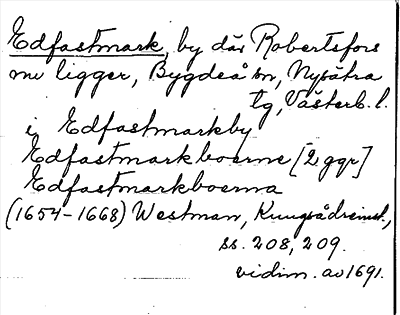 Edfastmark, by där Robertsfors
nu ligger, Bygdeå sn, Nysätra
tg, Västerb. l.
i Edfastmarkby
Edfastmarkboerne [2 ggr]
Edfastmarkboerna
(1654-1668) Westman, Kungsådreinst.,
ss. 208, 209.
vidim. av 1691.